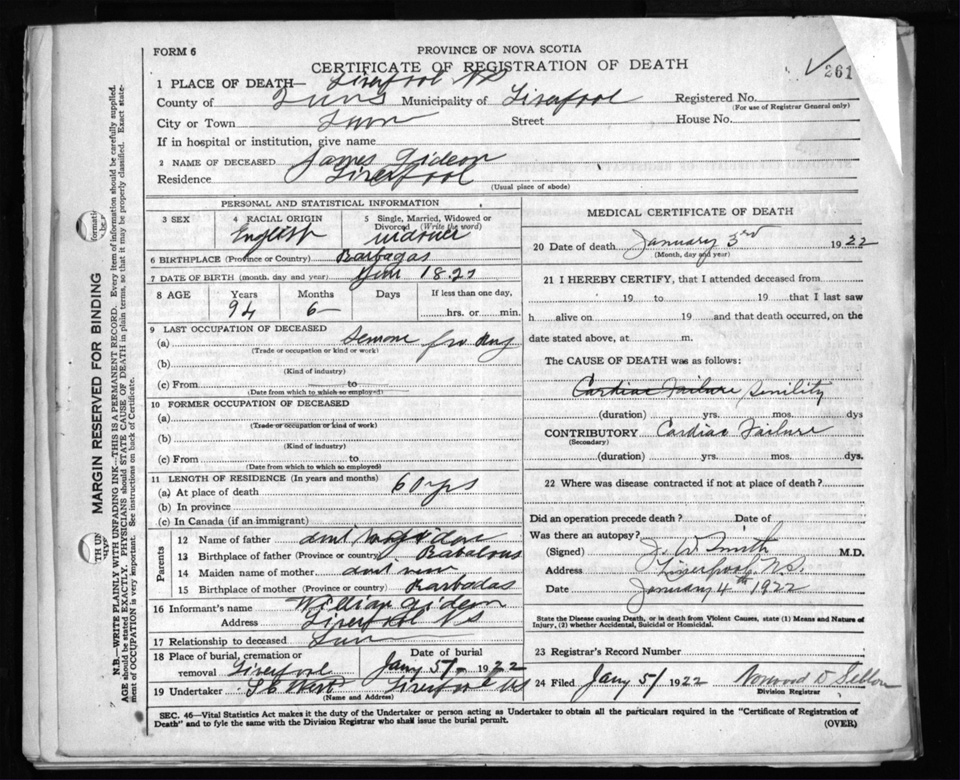 FORM 6
PROVINCE OF NOVA SCOTIA
CERTIFICATE OF REGISTRATION OF DEATH
261
1 PLACE OF DEATH— Liverpool NS
County of Municipality of Liverpool Registered No.
(For use of Registrar General only)
City or Town Street House No.
If in hospital or institution, give name
2 NAME OF DECEASED James Gideon
Residence Liverpool
(Usual place of abode)
PERSONAL AND STATISTICAL INFORMATION
3 SEX 4 RACIAL ORIGIN 5 Single, Married, Widowed or
Divorced (Write the word)
English
6 BIRTHPLACE (Province or Country) Barbadas
7 DATE OF BIRTH (month, day and year)
8 AGE Years Months Days If less than one day,
94 6— hrs. or min.
9 LAST OCCUPATION OF DECEASED
(a)
(Trade or occupation or kind or work)
(b)
(Kind of industry)
(c) From to
(Date from which to which so employed)
10 FORMER OCCUPATION OF DECEASED
(a)
(Trade or occupation or kind of work)
(b)
(Kind of industry)
(c) From to
(Date from which to which so employed)
11 LENGTH OF RESIDENCE (In years and months)
(a) At place of death 60 yrs
(b) In province
(c) In Canada (if an immigrant)
Parents
12 Name of father
13 Birthplace of father (Province or country)
14 Maiden name of mother
15 Birthplace of mother (Province or country) Barbadas
16 Informant's name William Gideon
Address Liverpool NS
17 Relationship to deceased
18 Place of burial, cremation or Date of burial
removal Liverpool Jany 5/- 1922
19 Undertaker Liverpool NS
(Name and Address)
MEDICAL CERTIFICATE OF DEATH
20 Date of death January 3rd 1922
(Month, day and year)
21 I HEREBY CERTIFY, that I attended deceased from
19 to 19 that I last saw
h alive on 19 and that death occurred, on the
date stated above, at m.
The CAUSE OF DEATH was as follows:
Cardiac Failure Senility
(duration) yrs. mos. dys
CONTRIBUTORY Cardiac Failure
(Secondary)
(duration) yrs. mos. dys.
22 Where was disease contracted if not at place of death?
Did an operation precede death? Date of
Was there an autopsy?
(Signed) J. W. Smith M.D.
Address Liverpool N.S.
Date January 4th 1922
State the Disease causing Death, or is death from Violent Causes, state (1) Means and Nature of
Injury, (2) whether Accidental, Suicidal or Homicidal.
23 Registrar's Record Number
24 Filed Jany 5/ 1922
Division Registrar
SEC. 46—Vital Statistics Act makes it the duty of the Undertaker or person acting as Undertaker to obtain all the particulars required in the "Certificate of Registration of
Death" and to fyle the same with the Division Registrar who shall issue the burial permit.
(OVER)
MARGIN RESERVED FOR BINDING
N.B.—WRITE PLAINLY WITH UNFADING INK—THIS IS A PERMANENT RECORD. Every item of information should be carefully supplied.
AGE should be stated EXACTLY. PHYSICIANS should STATE CAUSE OF DEATH in plain terms, so that it may be properly classified. Exact statement
of OCCUPATION is very important. See instructions on back of Certificate.